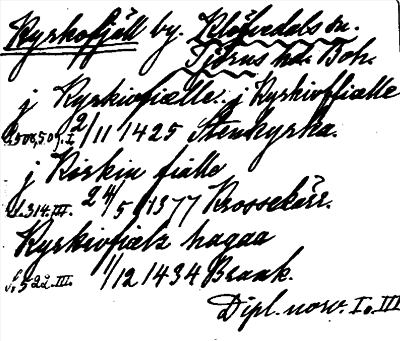 Kyrkofjäll by. Klöfvedals sn.
Tjörns hd. Boh.
j Kyrkiofiælle. j Kyrkioffiælle
s. 508, 509. I. 2/11 1425 Stenkyrka.
j Kirkiu fialle
s. 314. III. 24/5 1377 Krossekärr.
Kyrkiofiælz hagaa
s. 522. III. 1/12 1434 Braak.
Dipl. norv. I. III